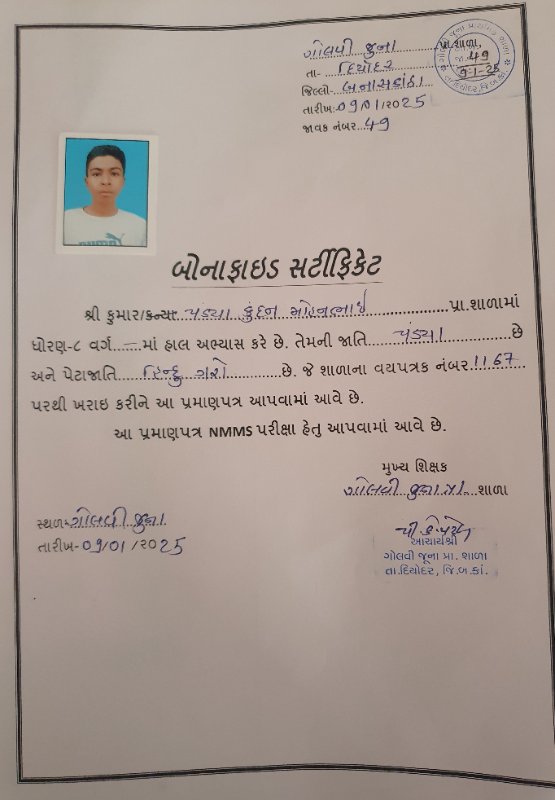 ગોલવી જુના પ્રા.શાળા,
તા- દિયોદર
જિલ્લો- બનાસકાંઠા
તારીખ:-09/01/૨૦25
જાવક નંબર...49
49
9-1-25
બોનાફાઇડ સર્ટીફિકેટ
શ્રી કુમાર/કન્યા. પંડ્યા કુંદન મોહનભાઇ પ્રા.શાળામાં
ધોરણ-૮ વર્ગ.....માં હાલ અભ્યાસ કરે છે. તેમની જાતિ પંડ્યા છે
અને પેટાજાતિ હિન્દુ ગરો છે. જે શાળાના વયપત્રક નંબર 1167
પરથી ખરાઇ કરીને આ પ્રમાણપત્ર આપવામાં આવે છે.
આ પ્રમાણપત્ર NMMS પરીક્ષા હેતુ આપવામાં આવે છે.
મુખ્ય શિક્ષક
ગોલવી જુના પ્રા. શાળા
સ્થળ-ગોલવી જુના
તારીખ-09/01/૨૦25
આચાર્યશ્રી
ગોલવી જૂના પ્રા. શાળા
તા.દિયોદર, જિ.બ.કાં.